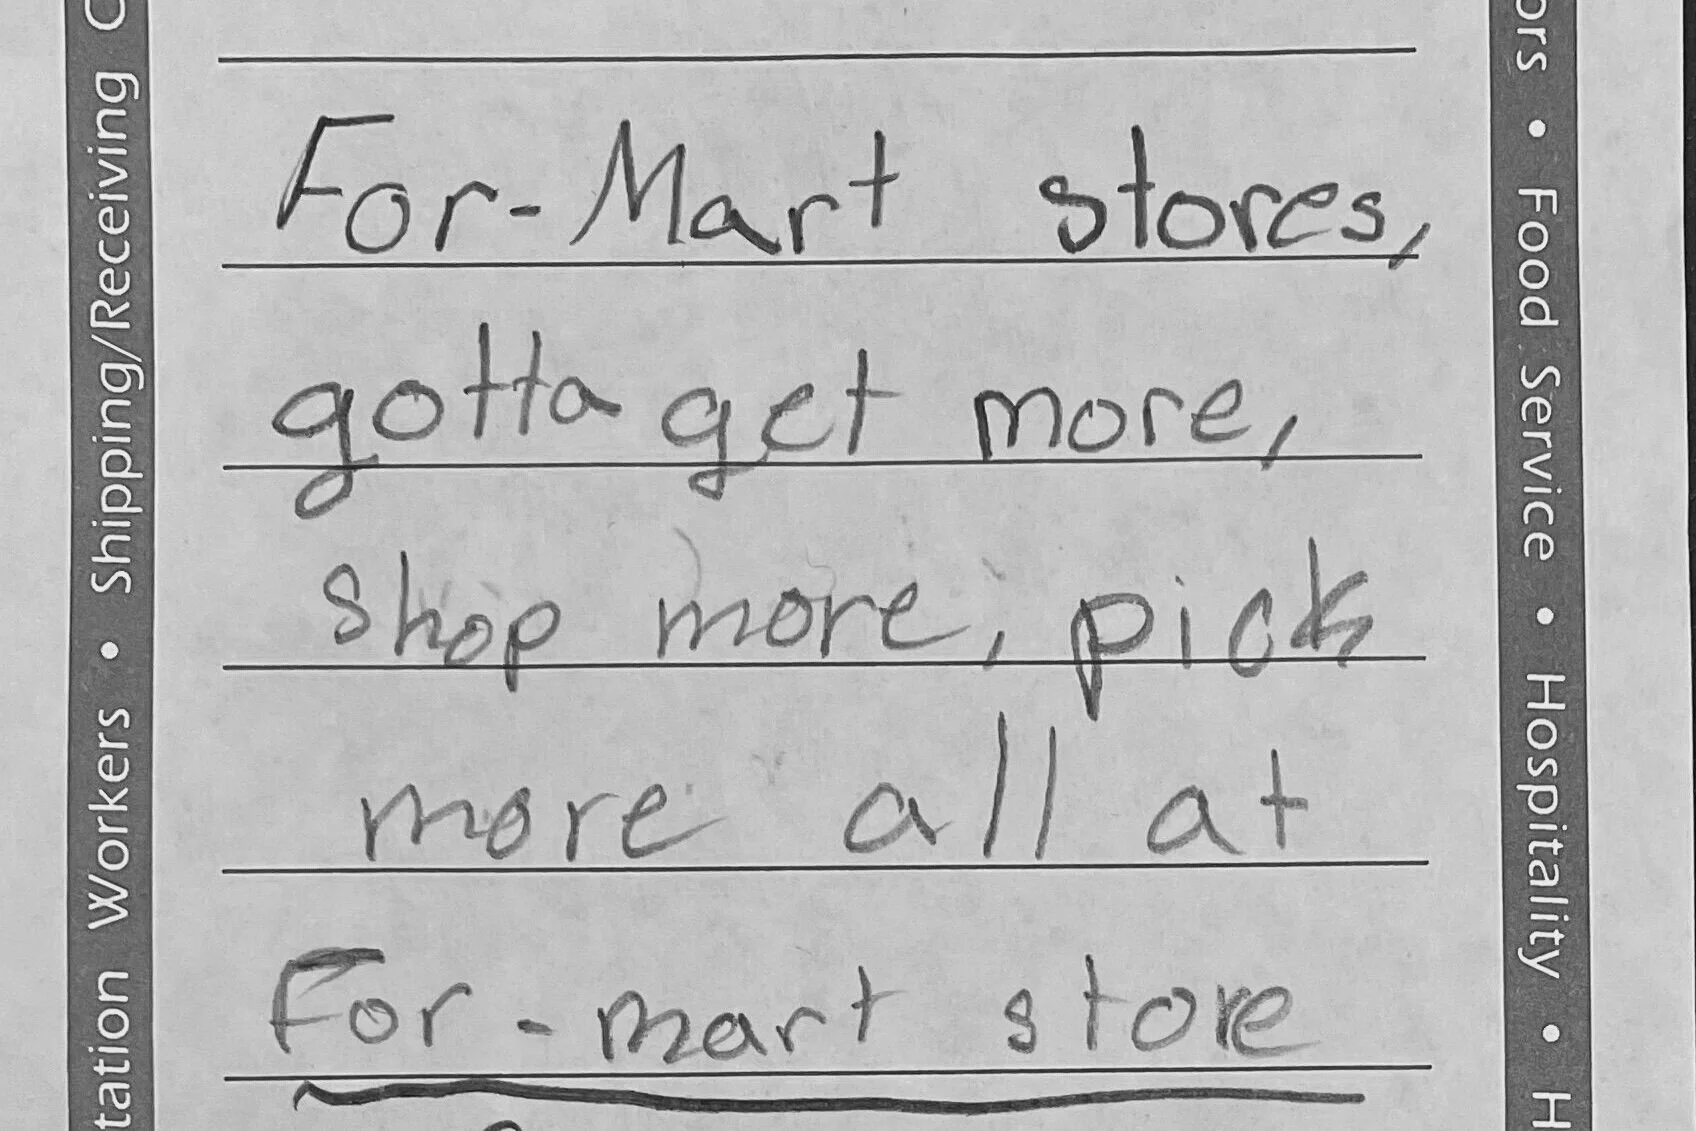 For-Mart stores,
gotta get more,
shop more, pick
more all at
For-mart store
tation Workers • Shipping/Receiving C
ors • Food Service • Hospitality • H